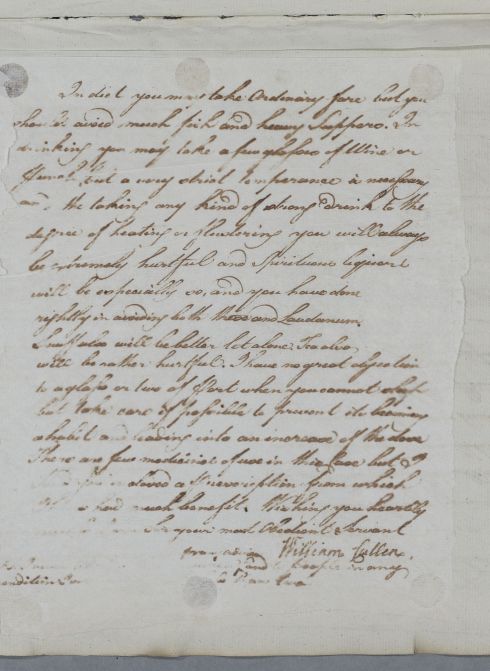 In diet you may take Ordinary fare but you
should avoid much fish and heavy Suppers. In
drinking you may take a few glasses of Wine or
Punch but a very strict temperance is necessary
and the taking any kind of strong drink to the
degree of heating or flustering you will always
be extremely hurtful and Spirituous liquors
will be especially so, and you have done
rightly in avoiding both these and Laudanum.
Snuff also will be better let alone. Tea also
will be rather hurtful. I have no great objection
to a glass or two of Port when you cannot sleep
but take care if possible to prevent its becoming
a habit and leading into an increase of the dose
There are few medicines of use in this case but I
a Prescription from which
had much benefit. Wishing you heartily
your most Obedient Servant
William Cullen.
and people in any
condition